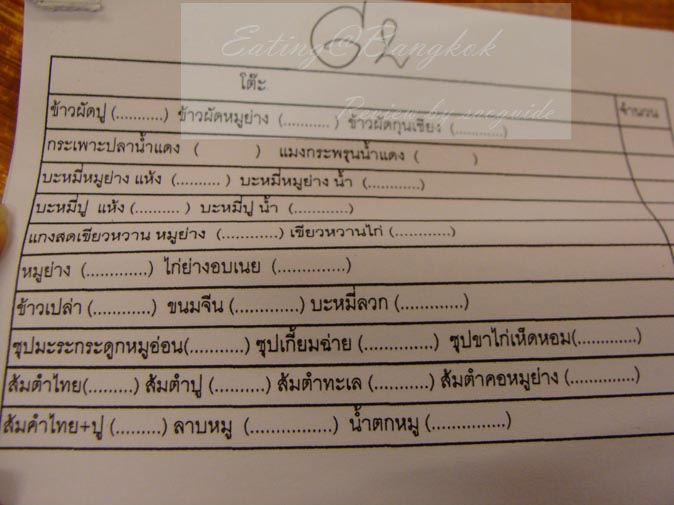 Eating@Bangkok
โต๊ะ
จำนวน
ข้าวผัดปู (...........) ข้าวผัดหมูย่าง (...........) ข้าวผัดกุนเชียง (............)
กระเพาะปลาน้ำแดง ( ) แมงกระพรุนน้ำแดง ( )
บะหมี่หมูย่าง แห้ง (.......... ) บะหมี่หมูย่าง น้ำ (............)
บะหมี่ปู แห้ง (.......... ) บะหมี่ปู น้ำ (............)
แกงสดเขียวหวาน หมูย่าง (............) เขียวหวานไก่ (............)
หมูย่าง (............) ไก่ย่างอบเนย (..............)
ข้าวเปล่า (............) ขนมจีน (............) บะหมี่ลวก (............)
ซุปมะระกระดูกหมูอ่อน(..........) ซุปเกี้ยมฉ่าย (.............) ซุปขาไก่เห็ดหอม(............)
ส้มตำไทย(.........) ส้มตำปู (..........) ส้มตำทะเล (..........) ส้มตำคอหมูย่าง (............)
ส้มคำไทย+ปู (.........) ลาบหมู (................) น้ำตกหมู (...............)